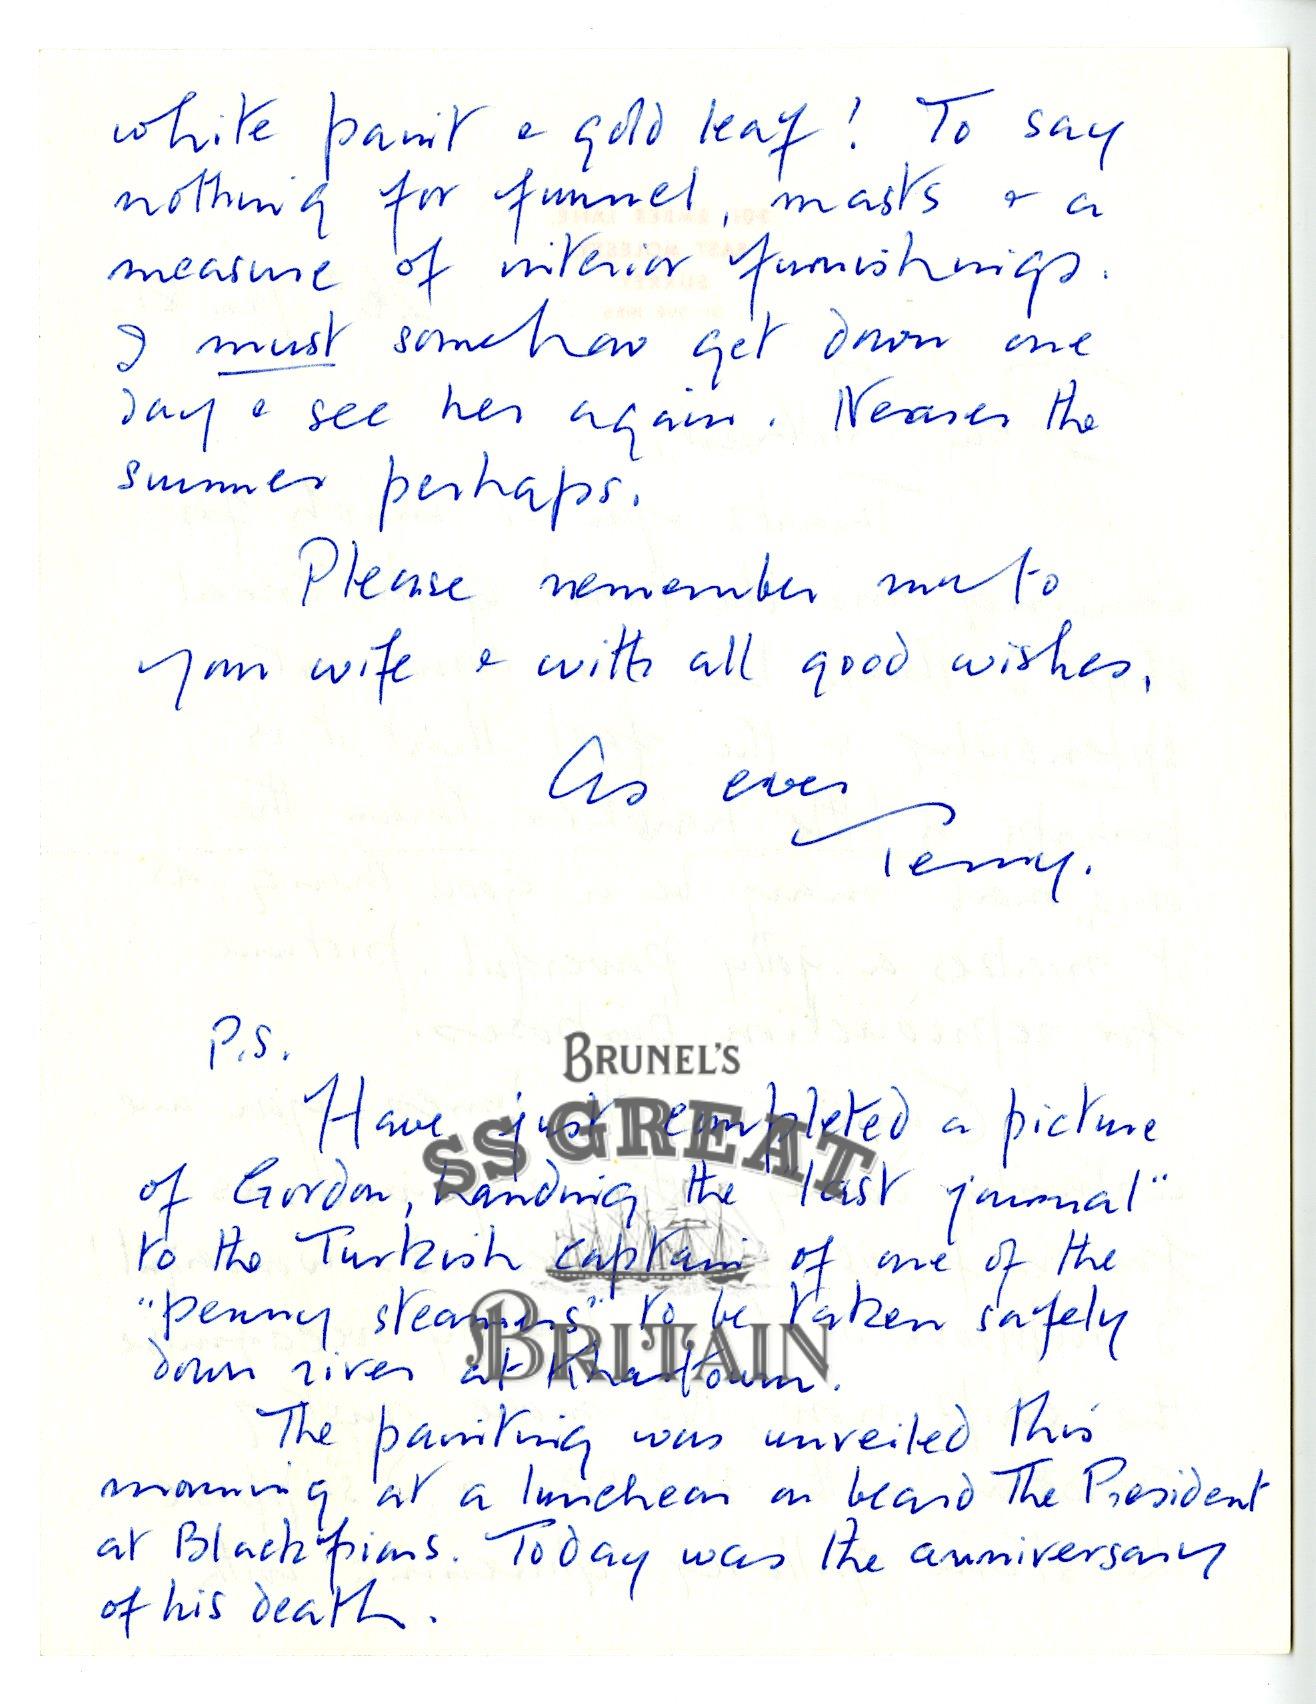 white paint & gold leaf! To say
nothing for funnel, masts & a
measure of interior furnishings.
I must somehow get down one
day & see her again. Nearer the
summer perhaps.
Please remember me to
your wife & with all good wishes,
As ever
Terry.
P.S.
BRUNEL'S
Have just completed a picture
SS GREAT
of Gordon, handing the "last journal"
to the Turkish captain of one of the
"penny steamers" to be taken safely
BRITAIN
down river at Khartoum.
The painting was unveiled this
morning at a luncheon on board The President
at Blackfriars. Today was the anniversary
of his death.